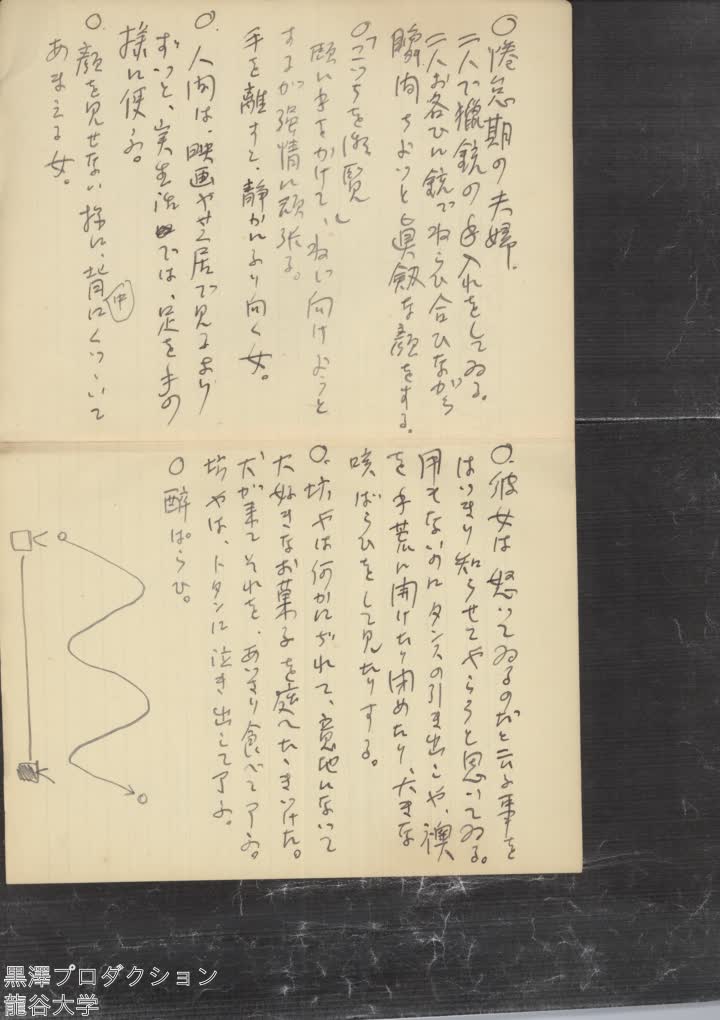 ○倦怠期の夫婦.
二人で猟銃の手入れをしてゐる。
二人お各ひに銃でねらひ合ひながら
瞬間ちよいと眞剱な顔をする。
○「こつちを御覧」
頤に手をかけて、ねじ向けようと
するが強情に頑張る。
手を離すと、静かにふり向く女。
○.人間は、映画や芝居で見るより
ずつと、実生活では、足を手の
様に使ふ。
○.顔を見せない様に、背中にくつゝいて
あまえる女。
○.彼女は怒つてゐるのだと云ふ事を
はつきり知らせてやらうと思つてゐる。
用もないのにタンスの引き出しや、襖
を手荒に開けたり閉めたり、大きな
咳ばらひをして見たりする。
○.坊やは何かにぢれて、意地になつて
大好きなお菓子を庭へたゝきつけた。
犬が来てそれを、あつさり食べて了ふ。
坊やは、トタンに泣き出して了ふ。
○醉ぱらひ。
黒澤プロダクション
龍谷大学